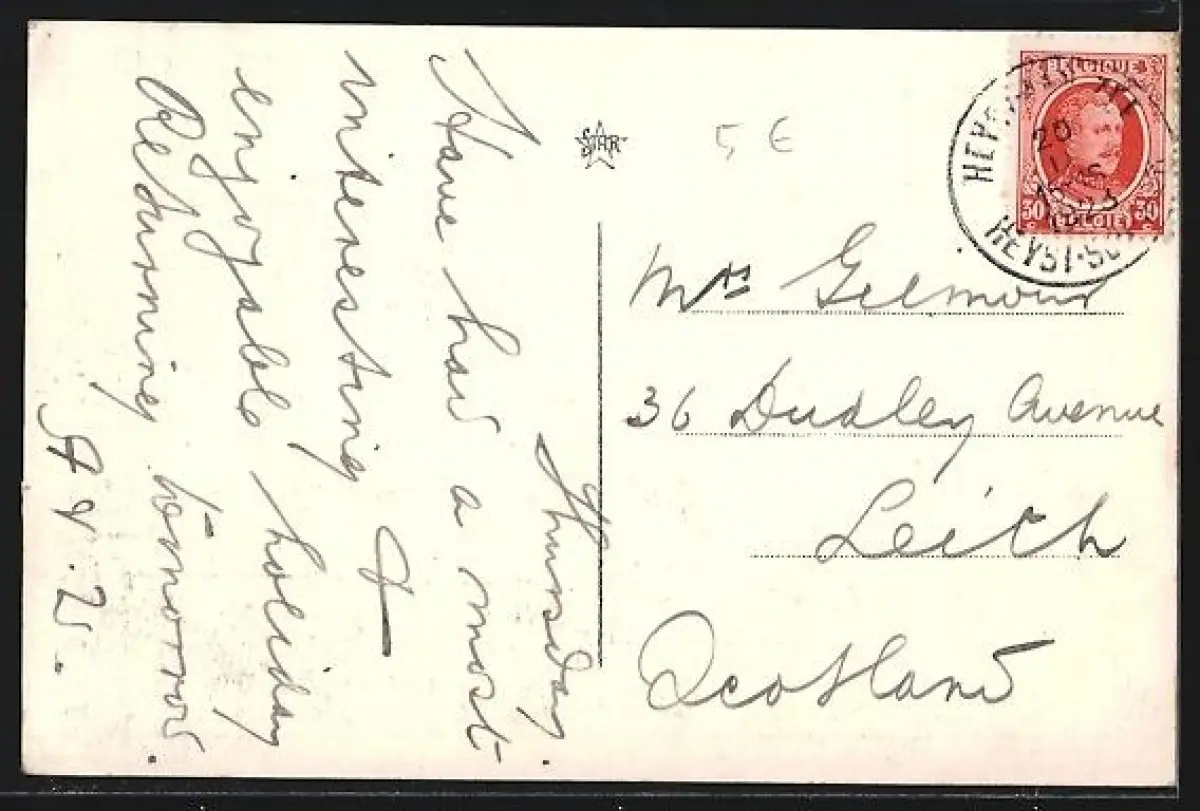 Thursday.
Have had a most
interesting &
enjoyable holiday
Returning tomorrow.
STAR
5 €
Mrs Gilmour
36 Dudley Avenue
Leith
Scotland
BELGIQUE
30 (BELGIE) 30
20
23
HEYST-S